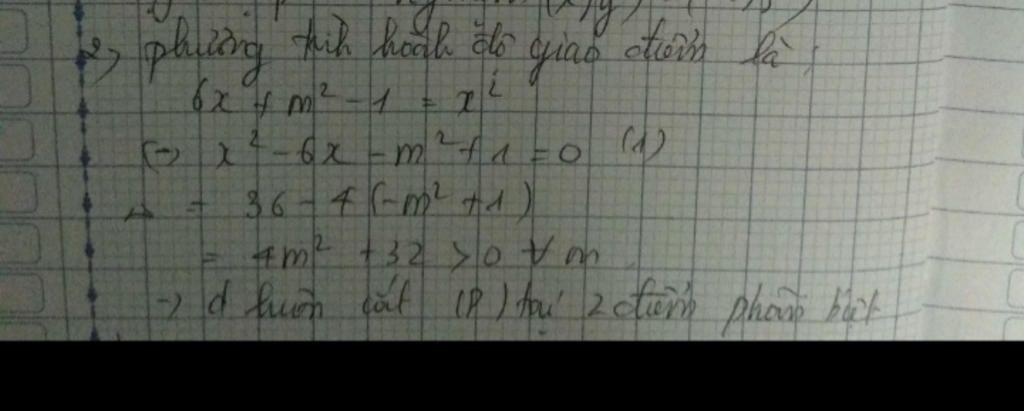 2) phương trình hoành độ giao điểm là :
6x + m² - 1 = x²
(-) x² - 6x - m² + 1 = 0 (1)
Δ = 36 - 4 (-m² + 1)
= 4m² + 32 > 0 ∀ m
-> d luôn cắt (P) tại 2 điểm phân biệt